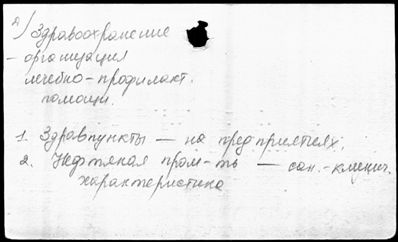 а) Здравоохранение
- организация
лечебно-профилакт.
помощи.
1. Здравпункты — на предприятиях.
2. Нефтяная пром-ть — сан.-клинич.
характеристика